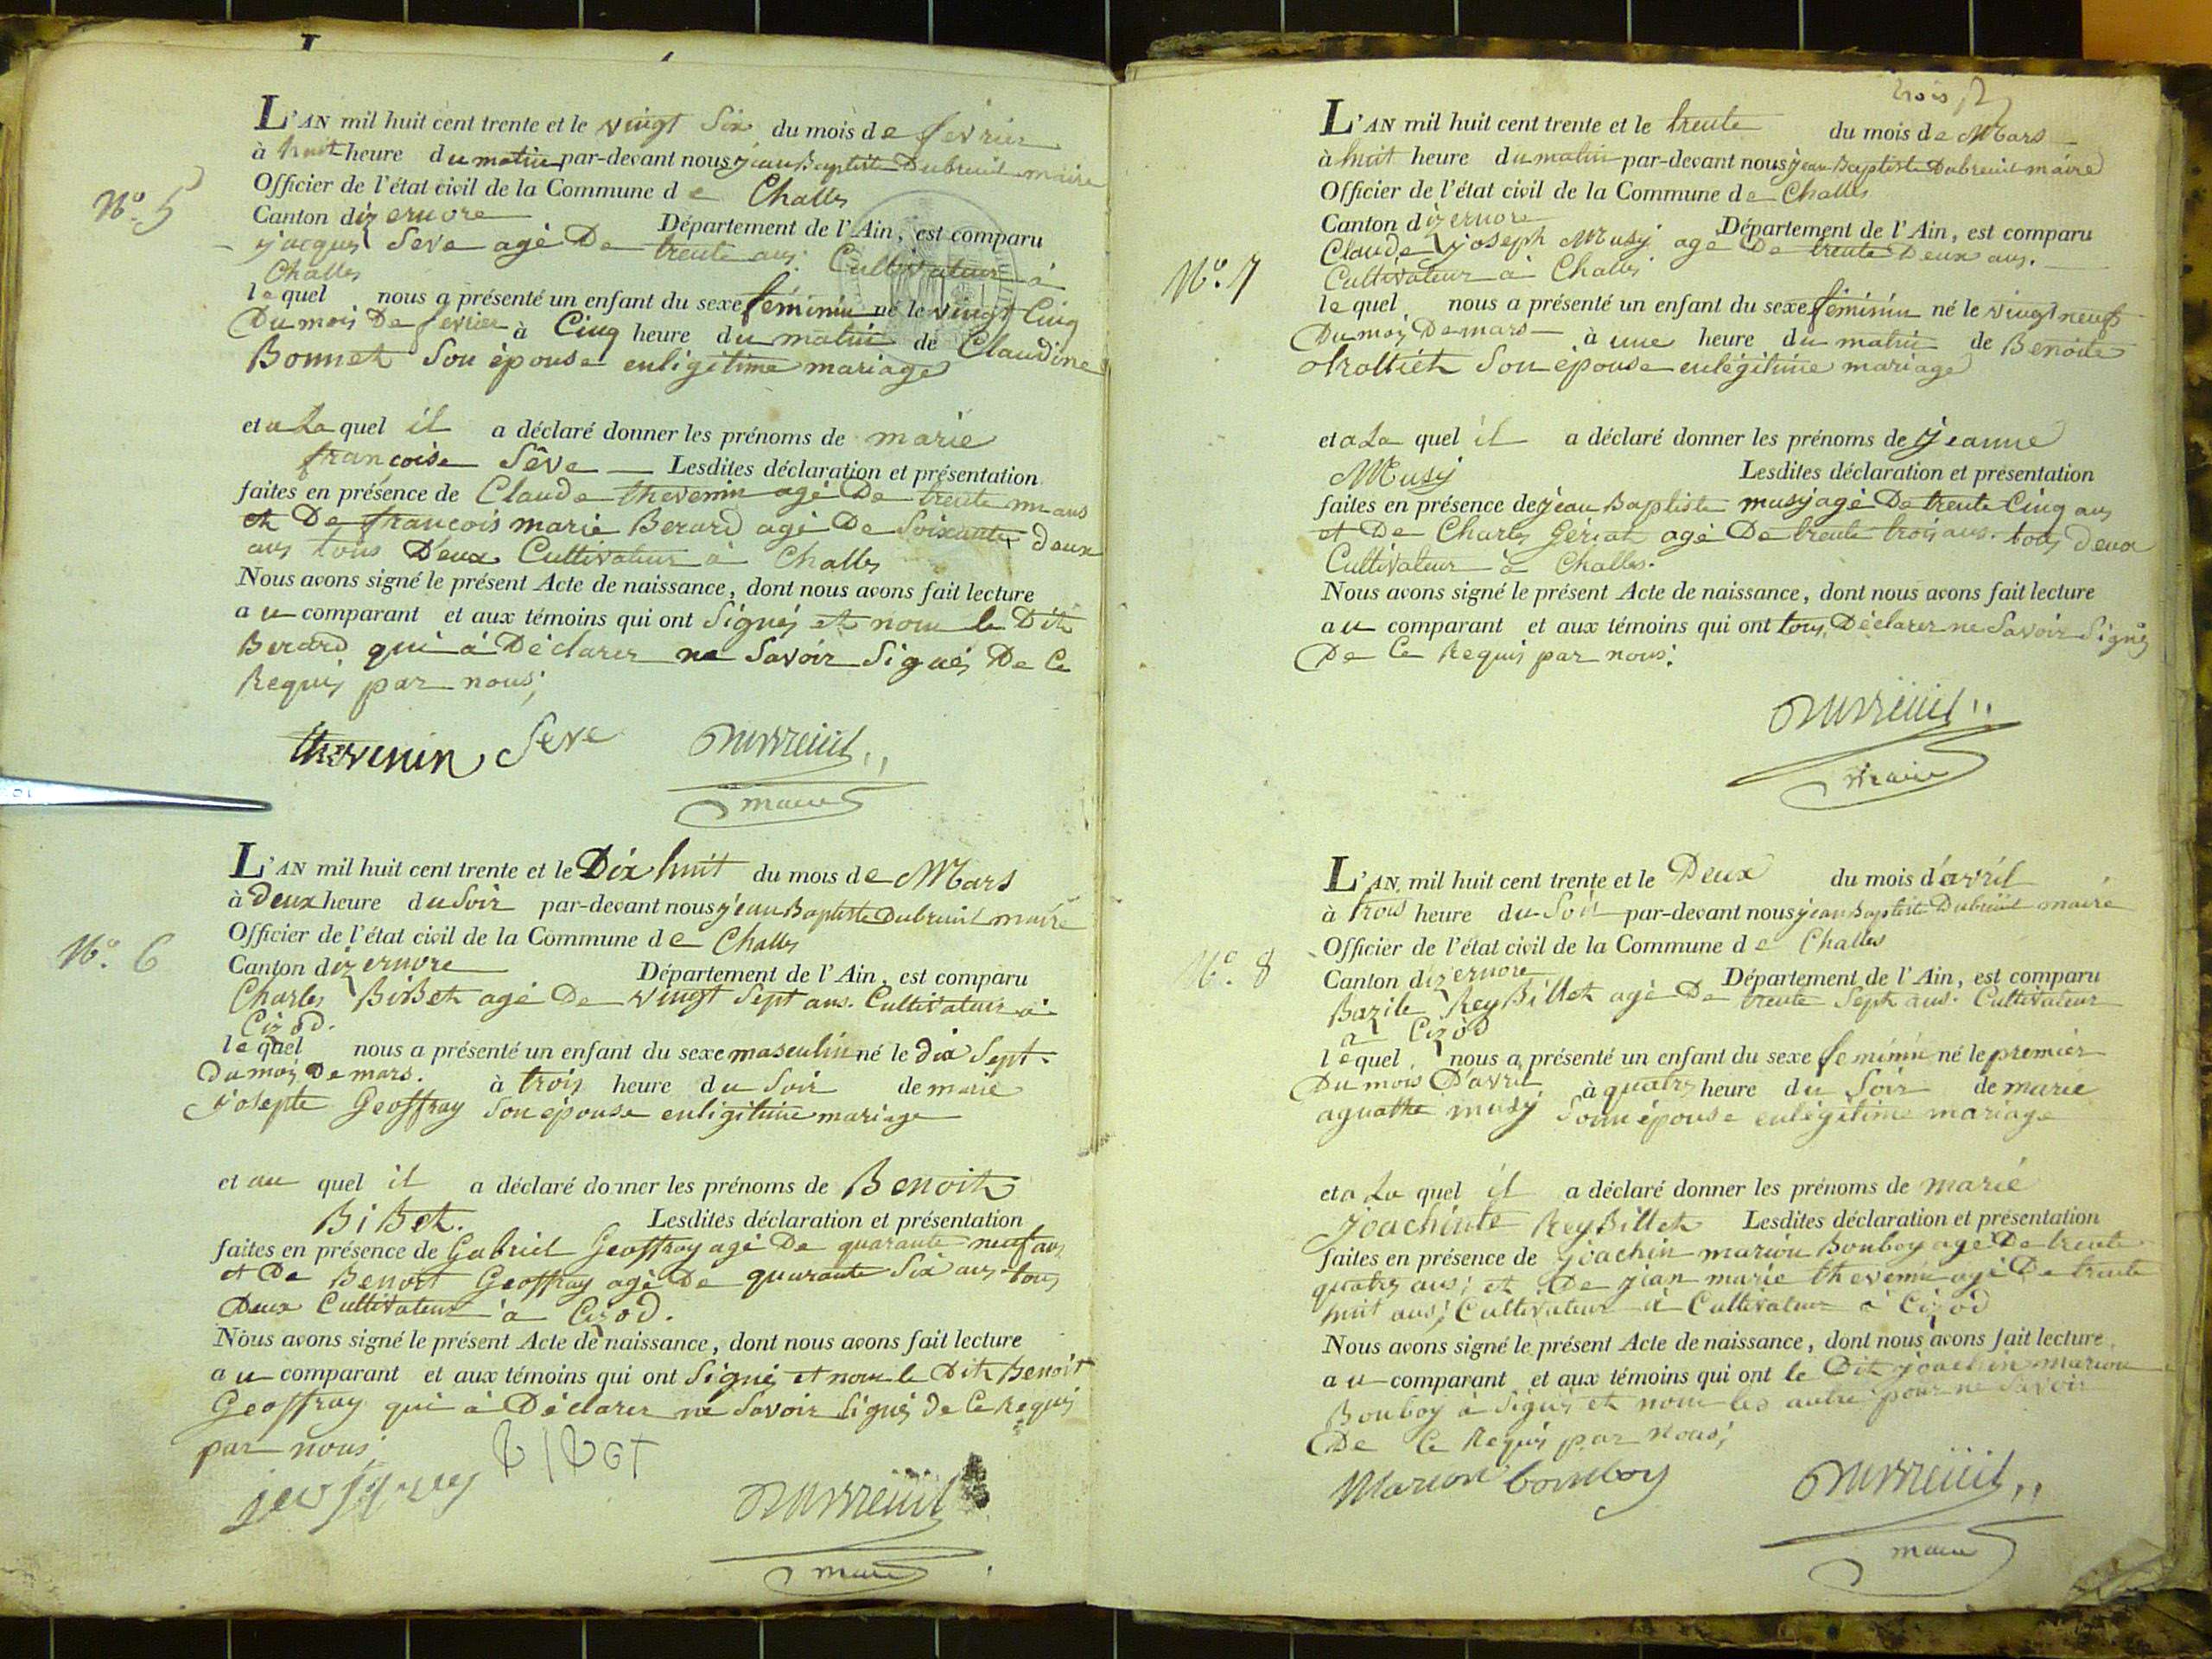 N.º 5
L'AN mil huit cent trente et le vingt Six du mois de fevrier
à huit heure du matin par-devant nous jean Baptiste Dubreuil maire
Officier de l'état civil de la Commune de Challes
Canton dizernore Département de l'Ain, est comparu
jacques Seve agé De trente ans Cultivateur à
Challes
lequel nous a présenté un enfant du sexe féminin né le vingt Cinq
Du mois De fevrier à Cinq heure du matin de Claudine
Bonnet Son épouse enligitime mariage
et a La quel il a déclaré donner les prénoms de marie
françoise Sêve Lesdites déclaration et présentation
faites en présence de Claude thevenin agé De trente ans
et De françois marie Berard agé De Soixante deux
ans tous Deux Cultivateur à Challes
Nous avons signé le présent Acte de naissance, dont nous avons fait lecture
au comparant et aux témoins qui ont Signés et nom le Dit
Berard qui à Déclarer ne Savoir Signés De Ce
Requis par nous;
thevenin Seve Dubreuil
maire
N.º 6
L'AN mil huit cent trente et le Dix huit du mois de Mars
à Deux heure du Soir par-devant nous jean Baptiste Dubreuil maire
Officier de l'état civil de la Commune de Challes
Canton dizernore Département de l'Ain, est comparu
Charles BiBet agé De vingt Sept ans. Cultivateur à
Cizod.
lequel nous a présenté un enfant du sexe masculin né le dix Sept.
Du mois De mars. à trois heure du Soir de marie
josepte Geoffray Son épouse enligitime mariage
et au quel il a déclaré donner les prénoms de Benoit
BiBet. Lesdites déclaration et présentation
faites en présence de Gabriel Geoffray agé De quarante neuf ans
et De Benoit Geoffray agé De quarante Six ans tous
Deux Cultivateur à Cizod.
Nous avons signé le présent Acte de naissance, dont nous avons fait lecture
au comparant et aux témoins qui ont Signés et nom le Dit Benoit
Geoffray qui à Déclarer ne Savoir Signés de Ce Requis
par nous;
BIBET
Dubreuil
maire
trois
N.º 7
L'AN mil huit cent trente et le trente du mois de Mars
à huit heure du matin par-devant nous jean Baptiste Dubreuil maire
Officier de l'état civil de la Commune de Challes
Canton dizernore Département de l'Ain, est comparu
Claude joseph Musy agé De trente Deux ans.
Cultivateur à Challes
lequel nous a présenté un enfant du sexe féminin né le vingt neufs
Du mois De mars à une heure du matin de Benoite
Son épouse enlégitime mariage
et a La quel il a déclaré donner les prénoms de jeanne
Musy Lesdites déclaration et présentation
faites en présence de jean Baptiste musy agé De trente Cinq ans
et De Charles Gériat agé De trente trois ans. tous deux
Cultivateur à Challes.
Nous avons signé le présent Acte de naissance, dont nous avons fait lecture
au comparant et aux témoins qui ont tous Déclarer ne Savoir Signés
De Ce Requis par nous;
Dubreuil
maire
N.º 8
L'AN mil huit cent trente et le Deux du mois d'avril
à trois heure du Soir par-devant nous jean Baptiste Dubreuil maire
Officier de l'état civil de la Commune de Challes
Canton dizernore Département de l'Ain, est comparu
Bazile Rey Billet agé De trente Sept ans. Cultivateur
à Cizod
lequel nous a présenté un enfant du sexe feminin né le premier
Du mois D'avril à quatre heure du Soir de marie
aguathe musy Sonn épouse enlégitime mariage
et a La quel il a déclaré donner les prénoms de marie
joachinte Rey Billet Lesdites déclaration et présentation
faites en présence de joachin marion Bonboy agé De trente
quatre ans; et De jean marie thevenin agé De trente
huit ans; Cultivateur à Cultivateur à Cizod
Nous avons signé le présent Acte de naissance, dont nous avons fait lecture
au comparant et aux témoins qui ont le Dit joachin marion
Bonboy à Signés et nom les autre pour ne Savoir
De Ce Requis par Nous;
Marion bonboy Dubreuil
maire